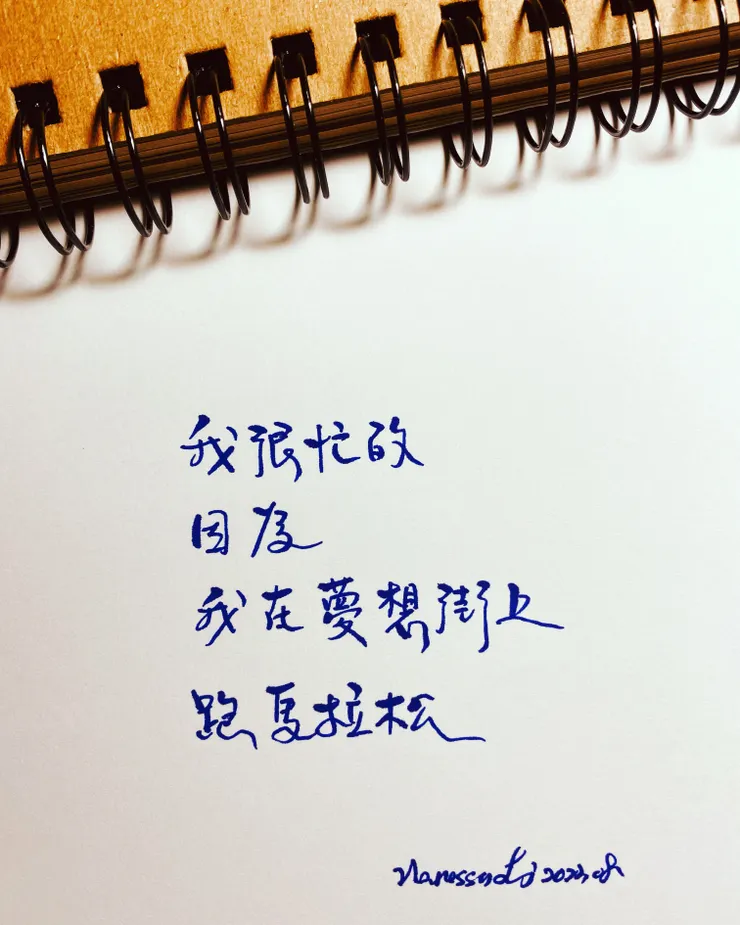 我很忙的
因為
我在夢想街上
跑馬拉松